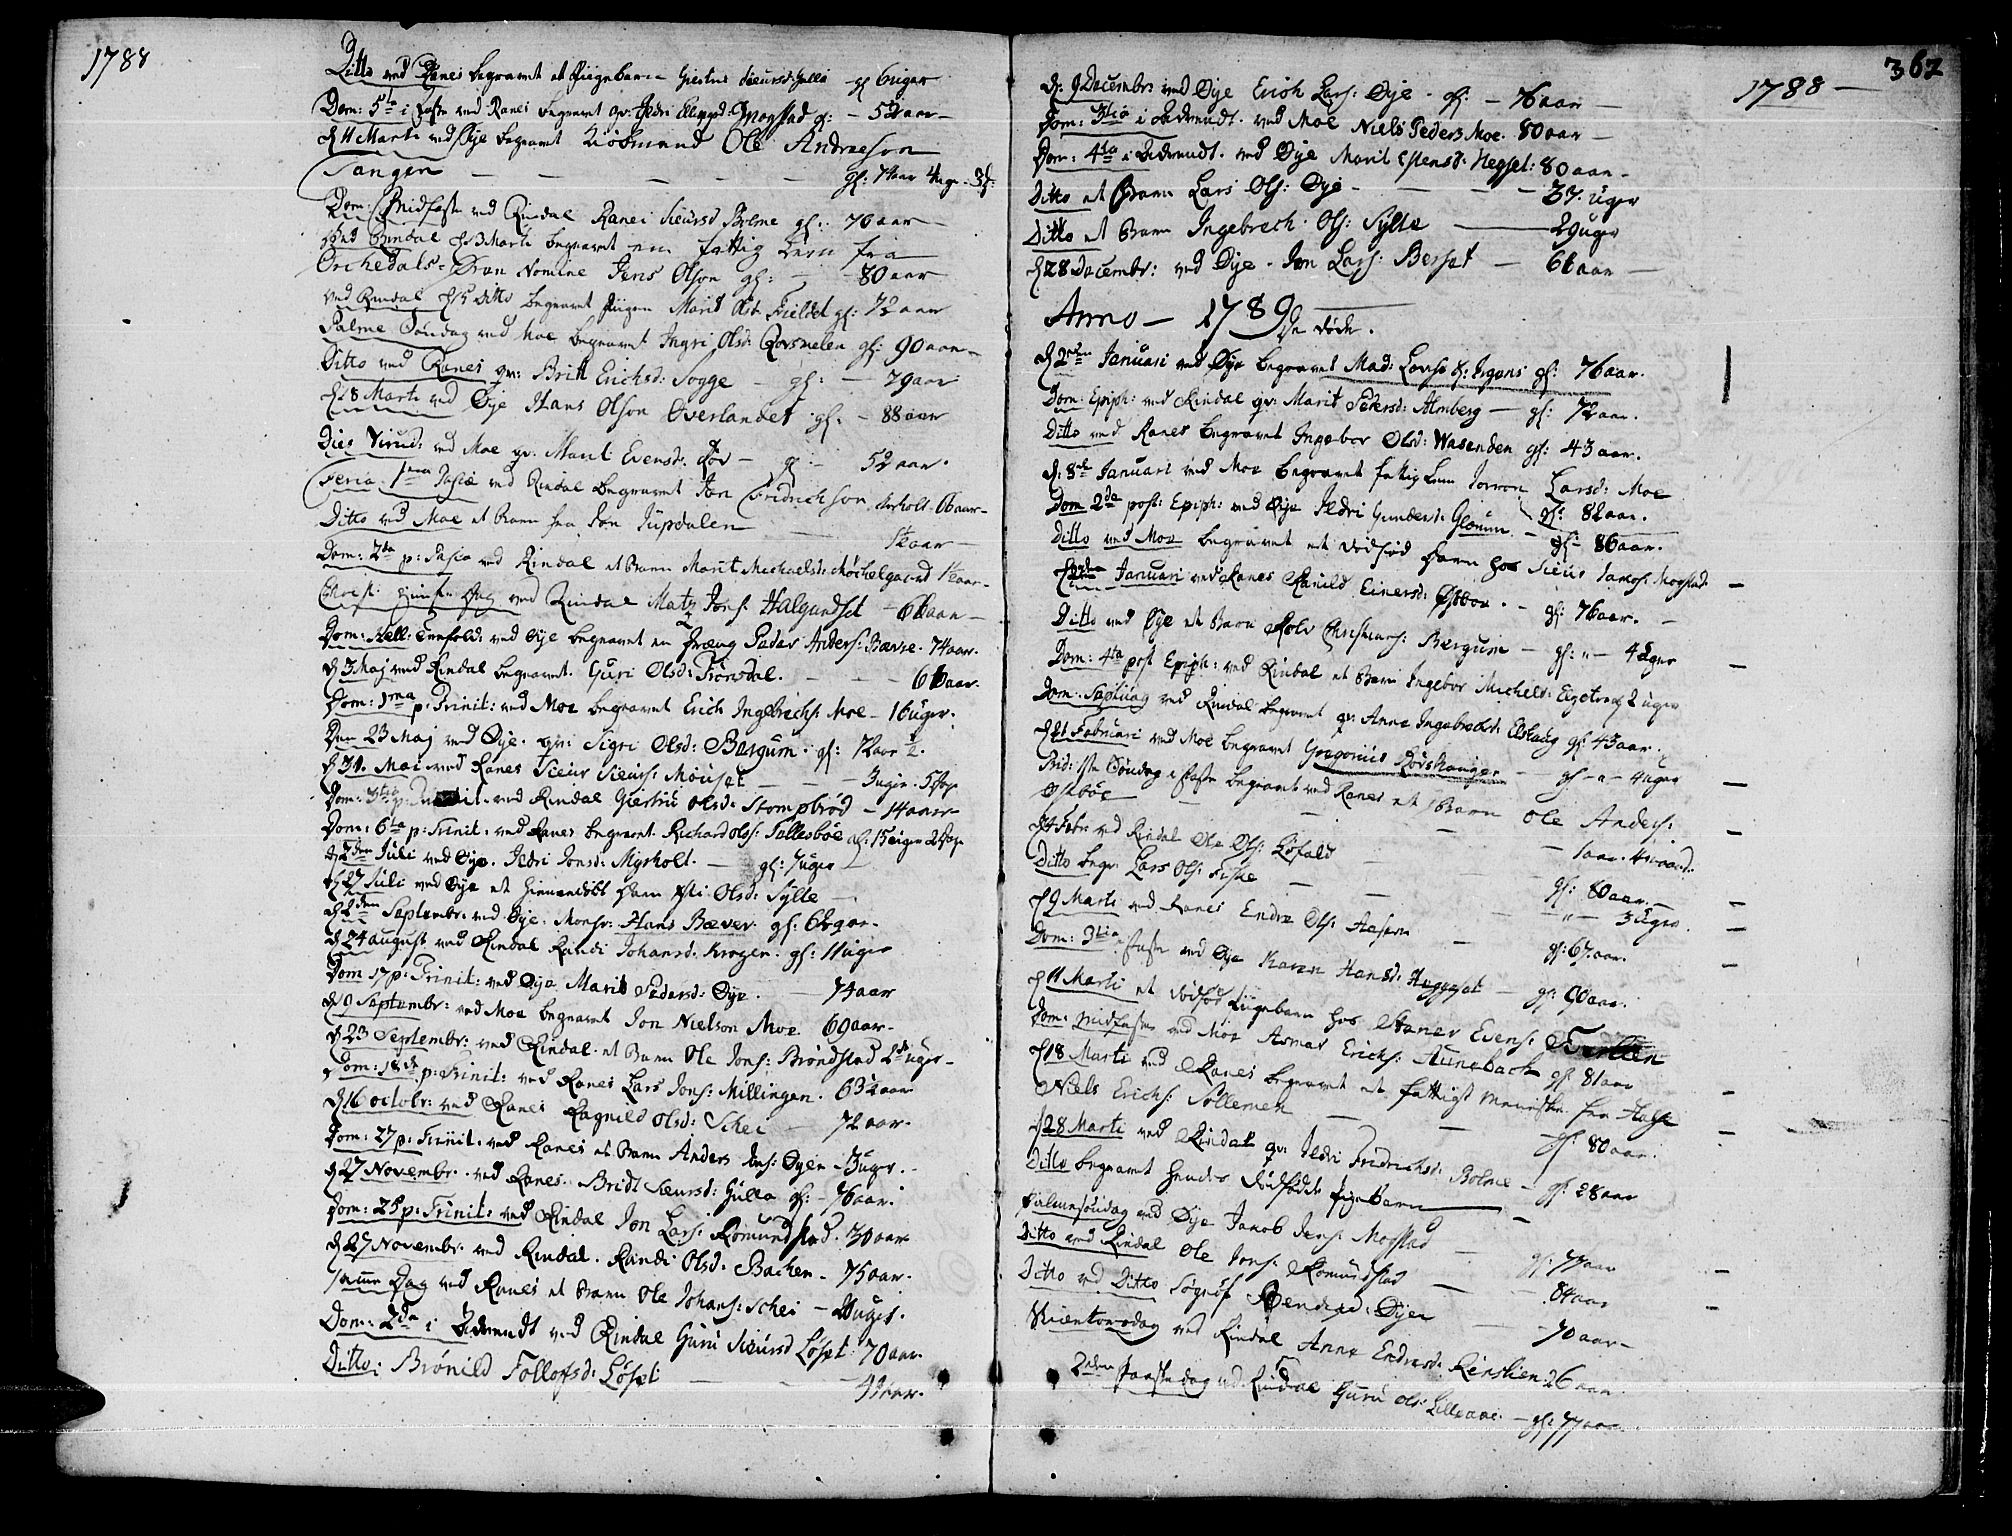 1788
Ditto ved Ranes begravet et Pigebarn Giertru Sieursd: Gulla gl: 6 uger
Dom: 5ta i Faste ved Ranes begravet qv: Sedri Mogstad gl: - 52 aar
d 11 Marti ved Øye begravet Kiøbmand Ole Andreeson
Tangen - - - - - gl: 74 aar 4 uger 3 d:
Dom: Midfaste ved Rindal Ranei Sieursd Bolme gl: 70 aar
ved Rindal d 13 Marti begravet en fattig Lem fra
Orchedals-Øran Nomine Jens Olson gl: - 80 aar
ved Rindal d 15 ditto begravet Pigen Marit Fieldet gl: 72 aar
Palme Søndag ved Moe begravet Ingri Olsd: Rovsmelen gl: 90 aar
Ditto ved Ranes qv: Britt Erichsd: Sogge - gl: - 79 aar
d 18 Marti ved Øye Hans Olson Øverlandet gl: - 88 aar
Dies Virid: ved Moe qv: Marit Evensd: Røv - gl: - 52 aar
Feria 1ma Pasca ved Rindal begravet Jon Fridrichson Aarholt 66 aar
Ditto ved Moe et Barn fra Jon Jupdalen - 1½ aar
Dom: 2da p: Pasca ved Rindal et Barn Marit Michaelsd: Mochelgaard 1½ aar
Christi Himmelf: Dag ved Rindal Matz Jons: Halgundset - 66 aar
Dom: Hell: Trefold: ved Øye begravet en Dreng Peder Anders: Bævre 74 aar
d 3 Maj ved Rindal begravet Guri Olsd: Tronsdal - - 66 aar
Dom: 1ma p: Trinit: ved Moe begravet Erich Ingebrichs: Moe - 16 uger
Den 23 Maj ved Øye qv: Sigri Olsd: Bergum gl: 72 aar ½
d 31 Mai ved Ranes Sieur Sieurs: Mouset - 3 uger 5 dage
Dom: 3tia p: Trinit ved Rindal Giertru Olsd: Stompbrød - 14 aar
Dom: 6ta p: Trinit: ved Ranes begravet Richard Ols: Sallesbøe gl: 15 uger 2 dage
d 2den Juli ved Øye Sedri Jonsd: Myrholt - gl: 7 uger
d 27 Juli ved Øye et hiemmedøbt Barn Olsd: Sylte
d 2den Septembr: ved Øye Monsr: Hans Bæver gl: 62 aar
d 24 august ved Rindal Randi Johansd: Krogen gl: 11 uger
Dom 17 p: Trinit: ved Øye Marit Pedersd: Øye - 74 aar
d 9 Septembr: ved Moe begravet Jon Nielson Moe 69 aar
d 23 Septembr: ved Rindal et Barn Ole Jons: Brøndstad 2 uger
Dom: 18de p: Trinit: ved Ranes Lars Jons: Millingen 63½ aar
d 16 octobr: ved Ranes Ragnild Olsd: Schei 72 aar
Dom: 27 p: Trinit: ved Ranes et Barn Anders Jons: Øyen - 3 uger
d 27 Novembr: ved Ranes Bridt Sieursd: Gulla gl: - 76 aar
Dom: 25 p: Trinit: ved Rindal Jon Lars: Romundstad 30 aar
d 27 Novembr: ved Rindal Randi Olsd: Bachen 75 aar
samme Dag ved Ranes et Barn Ole Johans: Schei - uger
Dom: 2da i Advendt ved Rindal Guru Sieursd Løset 70 aar
Ditto: Brønild Follofsd: Løset - - aar
362
1788
d: 9 Decembr: ved Øye Erich Lars: Øye gl: - 76 aar
Dom: 3tia i Advendt ved Moe Niels Peders Moe 80 aar
Dom: 4ta i Advendt ved Øye Marit Estensd: Hegset: 80 aar
Ditto et Barn Lars Ols: Øye - - - 37 uger
Ditto et Barn Ingebrech Ols: Sylte - 29 uger
d 28 Decembr: ved Øye Jon Lars: Berset - 66 aar
Anno - 1789 De døde.
d 2den Januari ved Øye begravet Mad: Lovise Irgens gl: 76 aar
Dom: Epiph: ved Rindal qv: Marit Pedersd: Almberg - gl: 72 aar
Ditto ved Ranes begravet Ingebor Olsd: Wasenden gl: 43 aar
d: 8de Januari ved Moe begravet fattig Lem Jorron Larsd: Moe
gl: 82 aar
Dom 2da post: Epiph: ved Øye Sedri Gundersd: Glærum - gl: 86 aar
Ditto ved Moe begravet et dødfød Barn hos Sieur Jacobs: Mogstad
Januari ved Ranes Ranild Einersd: Østbøe - gl: 76 aar
Ditto ved Øye et Barn Rolv Christians: Bergum - gl: - 4 uger
Dom: 4ta post Epiph: ved Rindal et Barn Ingebor Michelsd: Eigetrøe 2 uger
Dom: Septuag ved Rindal begravet qv: Anne Ingebrechtsd: Elshaug gl: 43 aar
d 21 Februari ved Moe begravet Gregorius Rovshaugen - gl - 4 uger
Mid: 1ste Søndag i Faste begravet ved Ranes et Barn Ole Anders:
Østbøe - - - 1 aar
d 4 Febr: ved Rindal Ole Ols: Løfald - gl: 80 aar
Ditto begr: Lars Ols: Fiske - - 3 uger
d 9 Marti ved Ranes Endre Ols: Aasen - gl: 67 aar
Dom: 3tia Faste ved Øye Karen Hansd: Heggset - gl: 90 aar
d 11 Marti et dødfød Pigebarn hos Staner Evens:
Dom: Midfaste ved Moe Asmar Erichs: Aunebach gl: 81 aar
d 18 Marti ved Ranes begravet et fattigt Menniske fra Halse
Niels Erichs: Sollemen - - gl: 80 aar
d 28 Marti ved Rindal qv: Sedri Fridrichsd: Bolme - gl: 28 aar
Ditto begravet hendes dødfødde Pigebarn
Palmesøndag ved Øye Jacob Jens: Mogstad - gl: 77 aar
Ditto ved Rindal Ole Jons: Romundstad - 84 aar
Ditto ved Ditto Sigrof Bendixd: Øyen - 70 aar
Skiertorsdag ved Rindal Anne Endresd: Renslien 26 aar
2den Paaskedag ved Rindal Guru Ols: Lillevaae - gl: 77 aar
1788